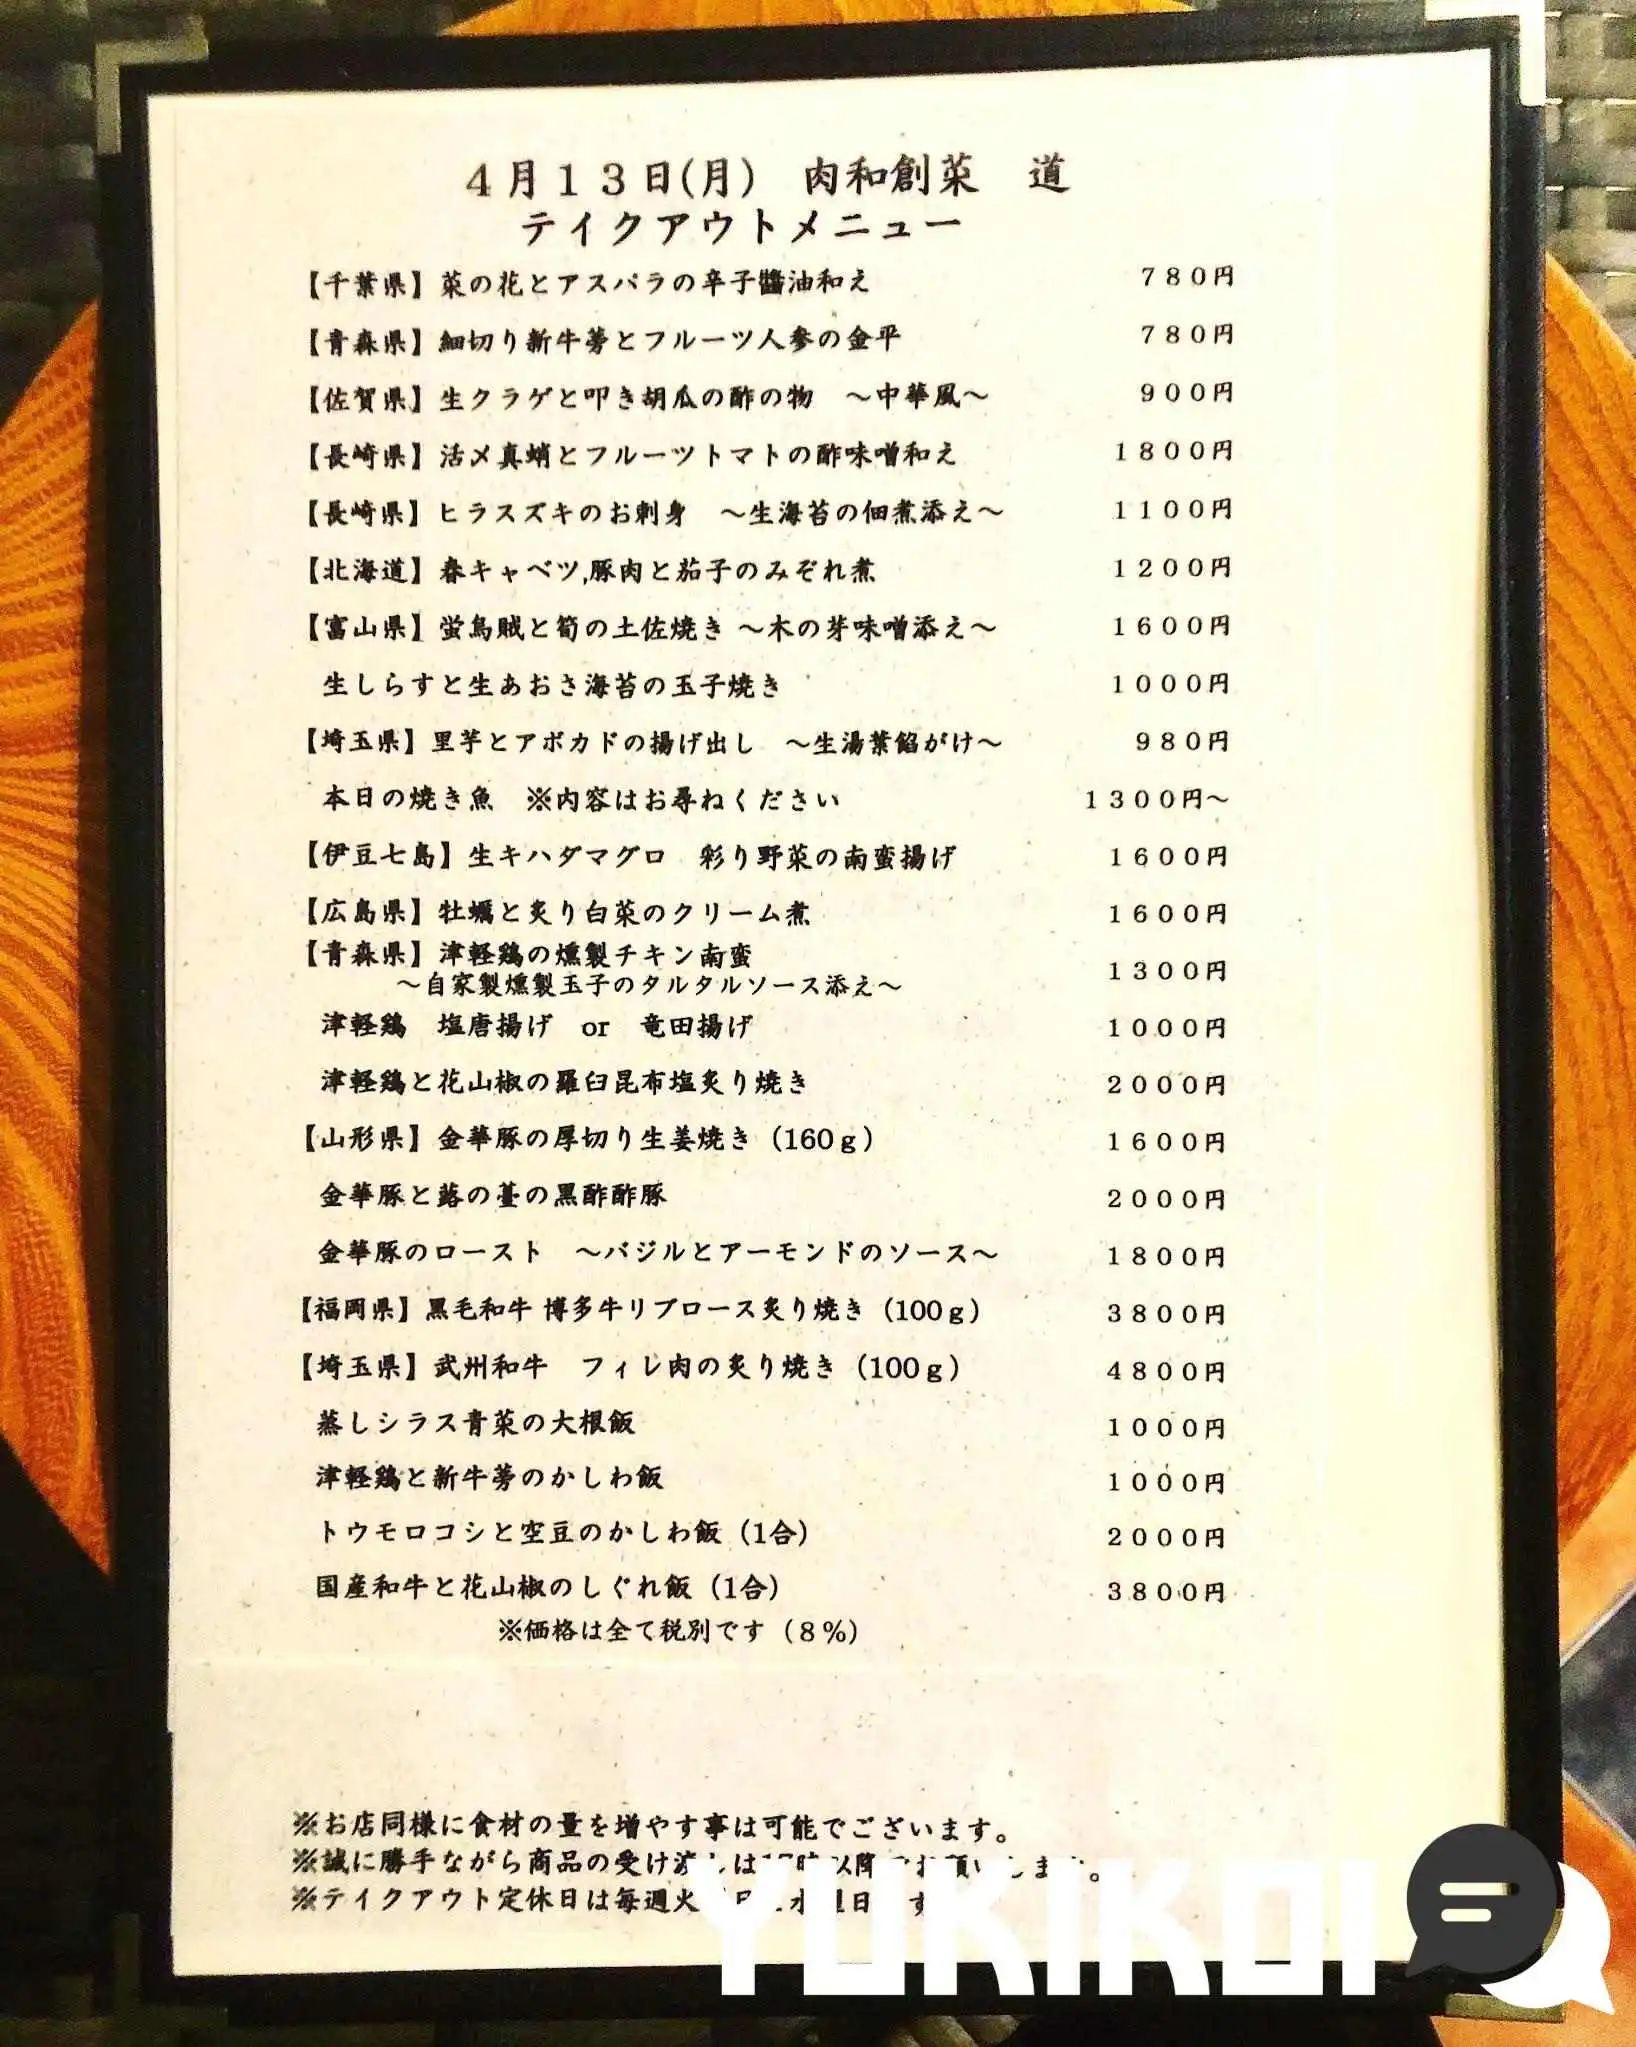 ４月１３日(月)　肉和創菜　道
テイクアウトメニュー
【千葉県】菜の花とアスパラの辛子醬油和え　７８０円
【青森県】細切り新牛蒡とフルーツ人参の金平　７８０円
【佐賀県】生クラゲと叩き胡瓜の酢の物　～中華風～　９００円
【長崎県】活〆真蛸とフルーツトマトの酢味噌和え　１８００円
【長崎県】ヒラスズキのお刺身　～生海苔の佃煮添え～　１１００円
【北海道】春キャベツ,豚肉と茄子のみぞれ煮　１２００円
【富山県】蛍烏賊と筍の土佐焼き ～木の芽味噌添え～　１６００円
生しらすと生あおさ海苔の玉子焼き　１０００円
【埼玉県】里芋とアボカドの揚げ出し　～生湯葉餡がけ～　９８０円
本日の焼き魚　※内容はお尋ねください　１３００円～
【伊豆七島】生キハダマグロ　彩り野菜の南蛮揚げ　１６００円
【広島県】牡蠣と炙り白菜のクリーム煮　１６００円
【青森県】津軽鶏の燻製チキン南蛮　１３００円
～自家製燻製玉子のタルタルソース添え～
津軽鶏　塩唐揚げ　or　竜田揚げ　１０００円
津軽鶏と花山椒の羅臼昆布塩炙り焼き　２０００円
【山形県】金華豚の厚切り生姜焼き（160ｇ）　１６００円
金華豚と蕗の薹の黒酢酢豚　２０００円
金華豚のロースト　～バジルとアーモンドのソース～　１８００円
【福岡県】黒毛和牛 博多牛リブロース炙り焼き（100ｇ）　３８００円
【埼玉県】武州和牛　フィレ肉の炙り焼き（100ｇ）　４８００円
蒸しシラス青菜の大根飯　１０００円
津軽鶏と新牛蒡のかしわ飯　１０００円
トウモロコシと空豆のかしわ飯（1合）　２０００円
国産和牛と花山椒のしぐれ飯（1合）　３８００円
※価格は全て税別です（８％）
※お店同様に食材の量を増やす事は可能でございます。
※誠に勝手ながら商品の受け渡しは 以降 お願いします。
※テイクアウト定休日は毎週火
YUKIKOI